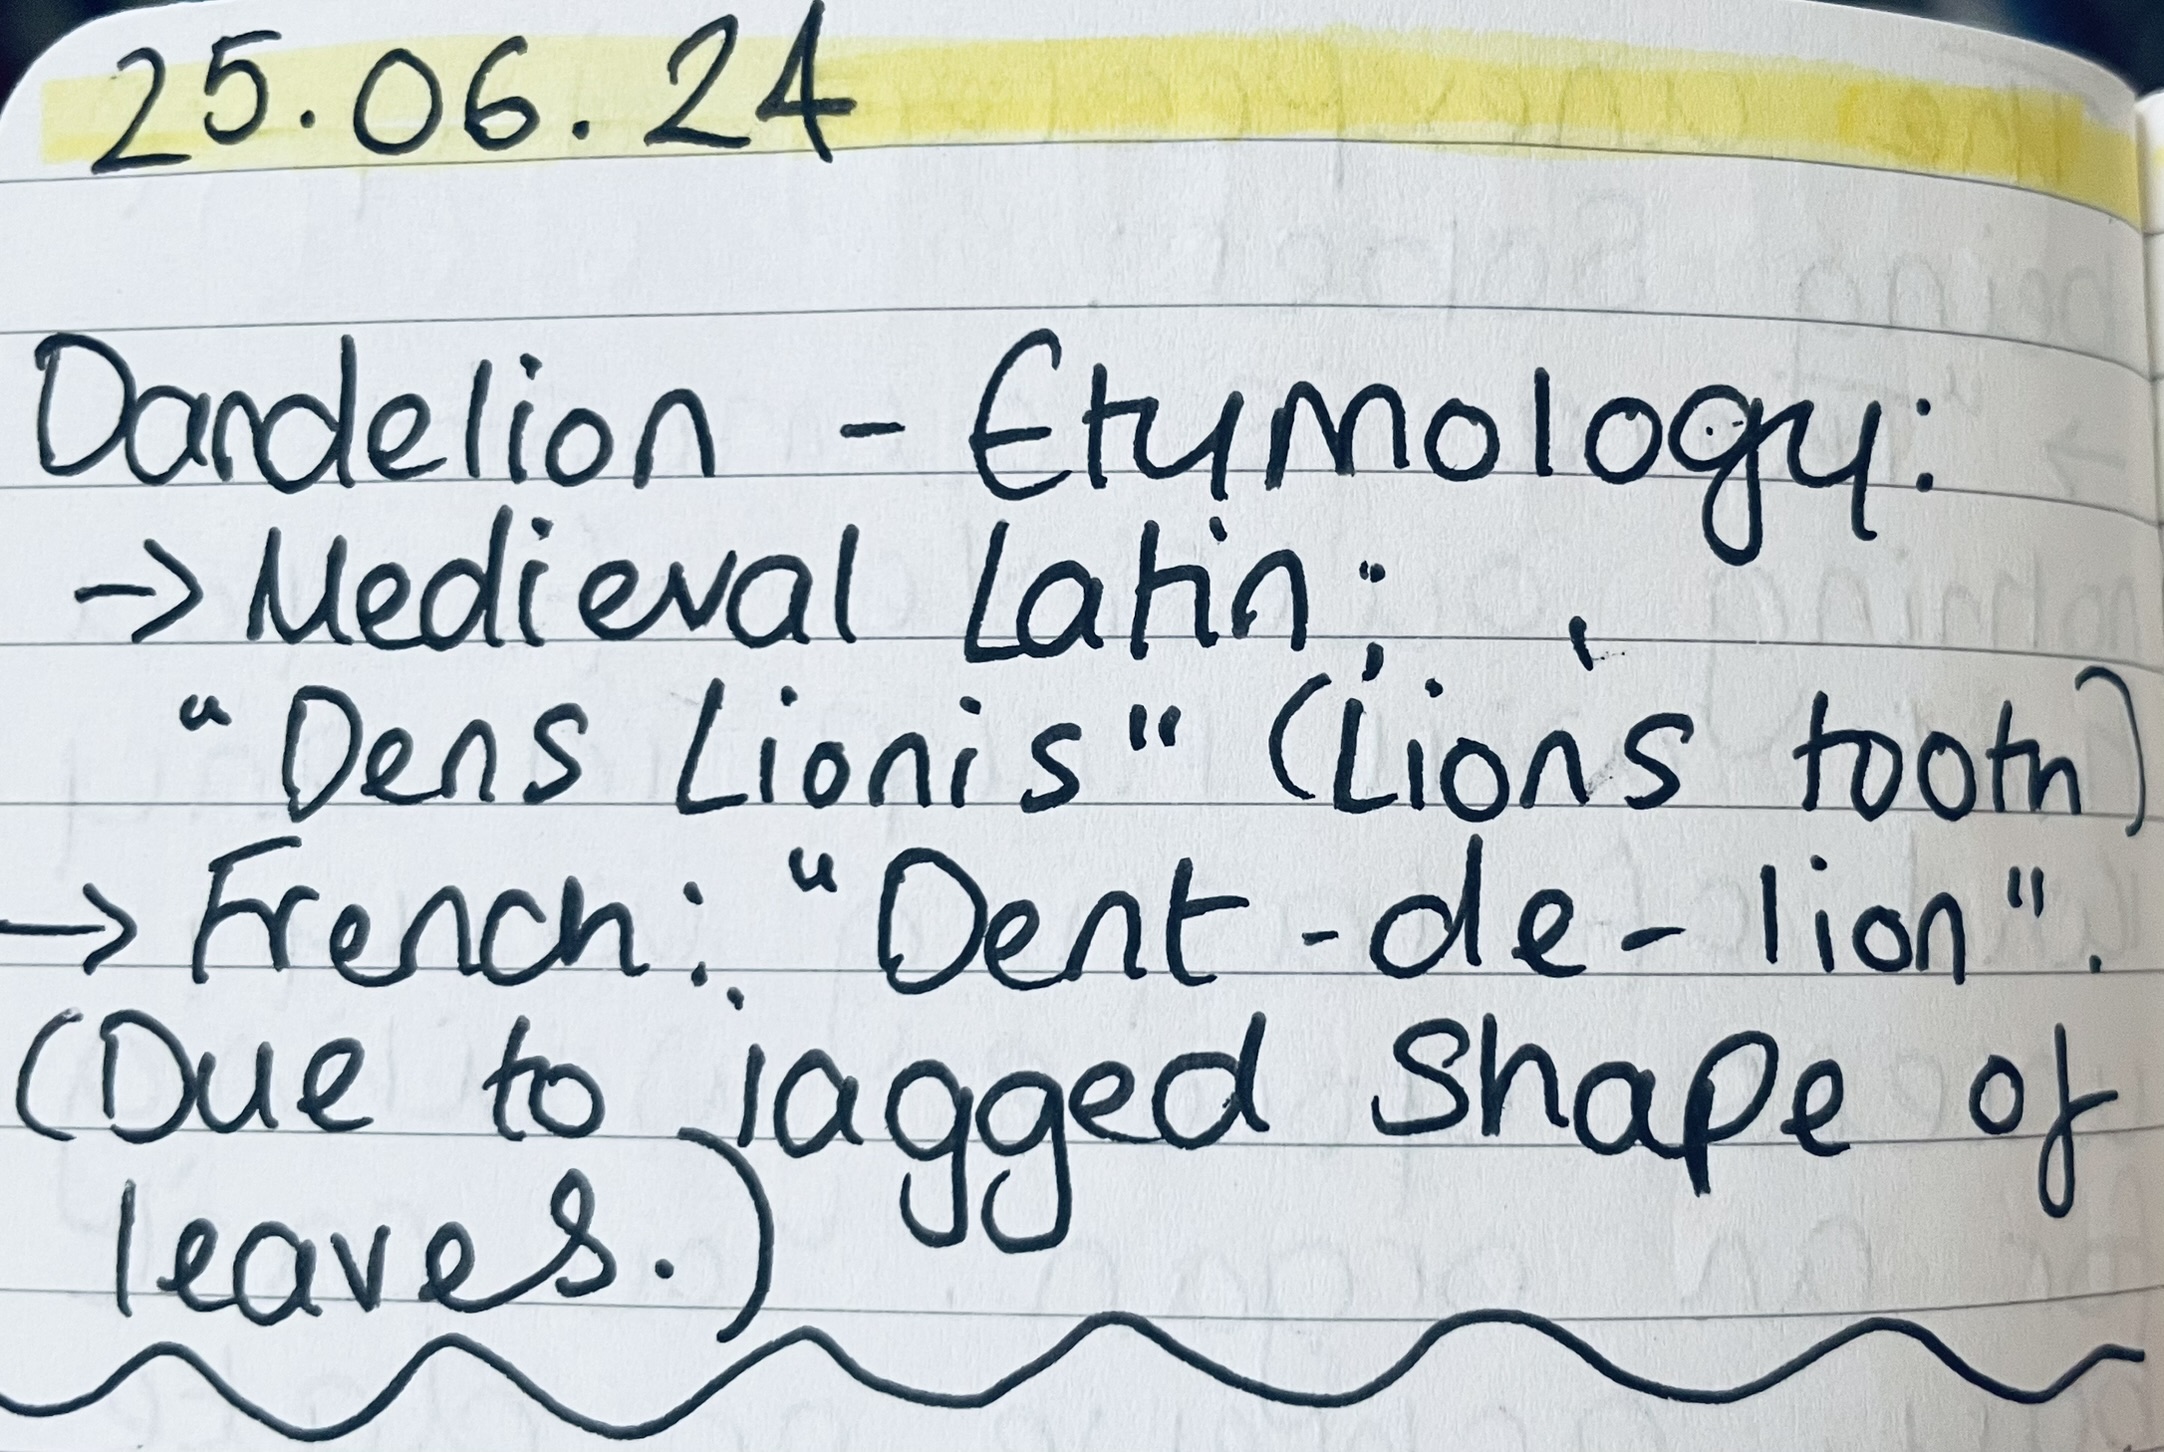 25.06.24
Dandelion - Etymology:
→ Medieval Latin;
"Dens Lionis" (Lion's tooth)
→ French: "Dent-de-lion".
(Due to jagged shape of
leaves.)